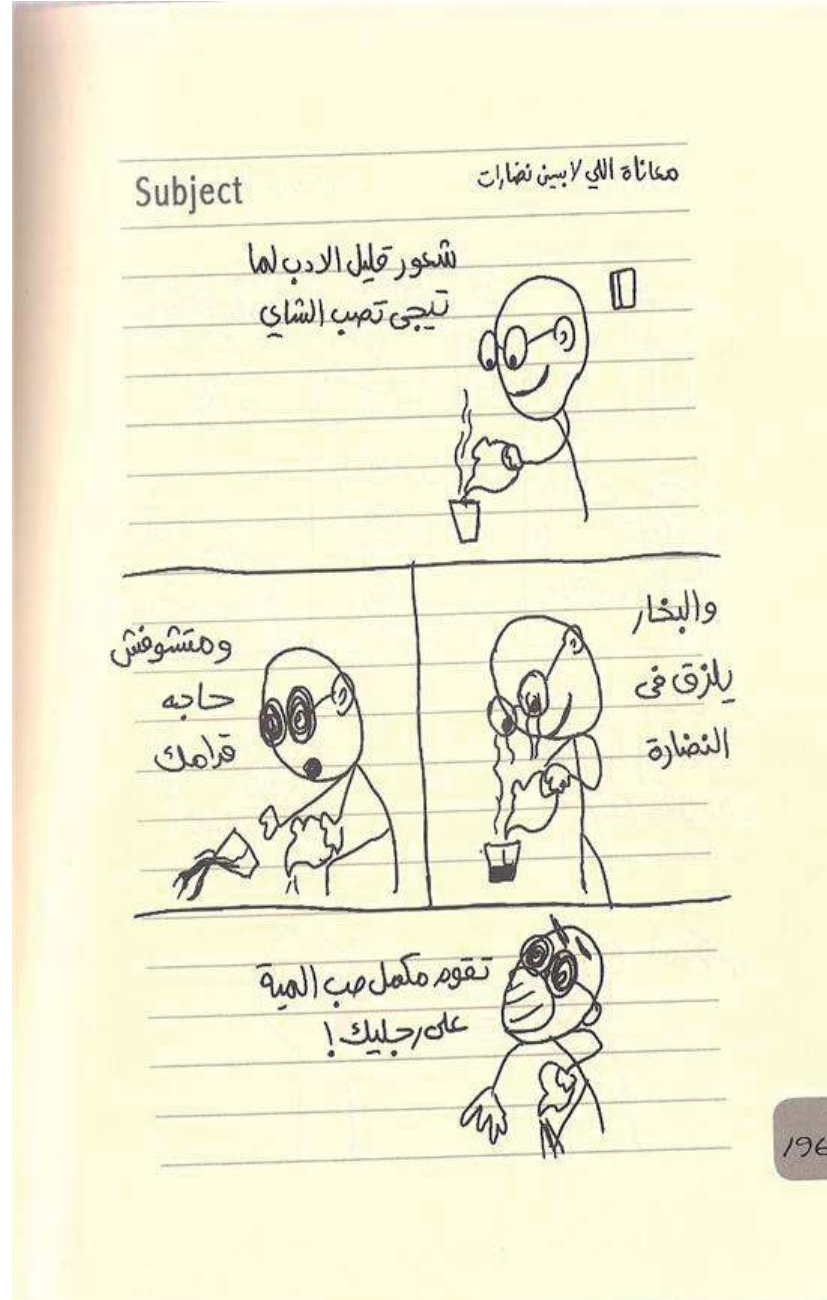 معاناة اللي لابسين نضارات
Subject
شعور قليل الادب لما
تيجى تصب الشاي
والبخار
يلزق فى
النضارة
ومتشوفش
حاجه
قدامك
تقوم مكمل صب المية
على رجليك !
196